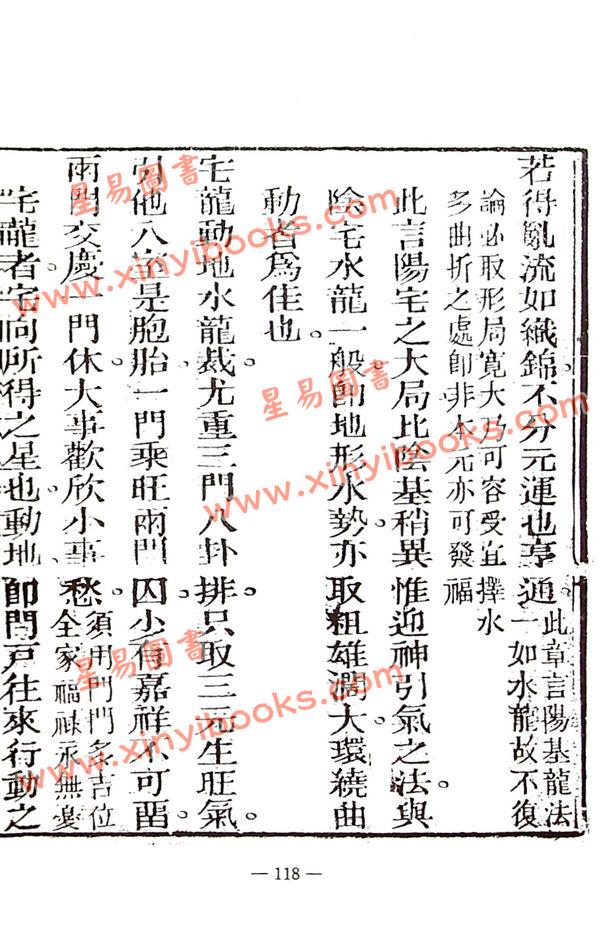 若得亂流如織錦不分元運也亨通此章言陽基龍法
一如水龍故不復
論必取形局寬大乃可容受宜擇水
多曲折之處卽非本元亦可發福
此言陽宅之大局比陰基稍異惟迎神引氣之法與
陰宅水龍一般卽地形水勢亦取粗雄濶大環繞曲
動者爲佳也
宅龍動地水龍裁尤重三門八卦排只取三元生旺氣
引他入室是胞胎一門乘旺兩門囚少有嘉祥不可畱
兩門交慶一門休大事歡欣小事愁須用門門多吉位
全家福祿永無憂
宅龍者宅向所得之星也動地卽門戸往來行動之
星易圖書
www.xinyibooks.com
星易圖書
www.xinyibooks.com
星易圖書
www.xinyibooks.com
星易圖書
www.xinyibooks.com
— 118 —